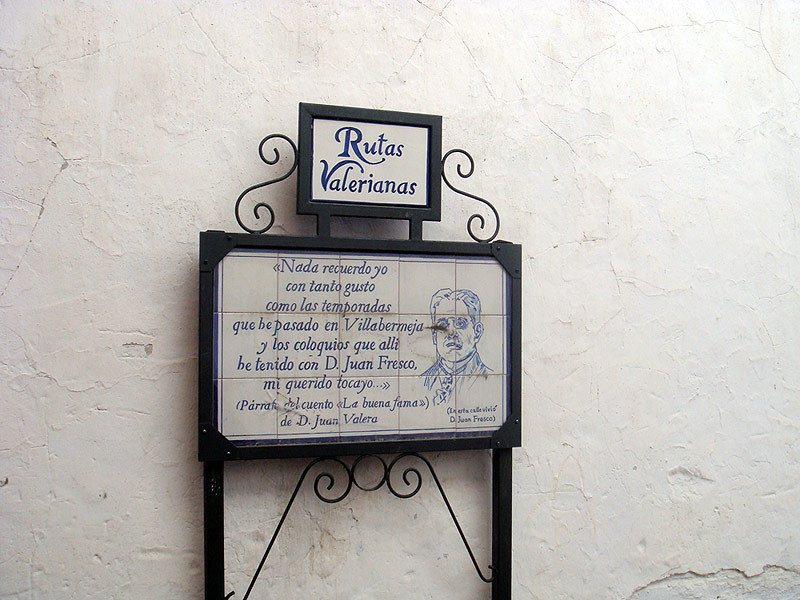 Rutas
Valerianas
«Nada recuerdo yo
con tanto gusto
como las temporadas
que he pasado en Villabermeja
y los coloquios que allí
he tenido con D. Juan Fresco,
mi querido tocayo...»
(Párrafo del cuento «La buena fama»)
de D. Juan Valera
(En esta calle vivió
D. Juan Fresco)